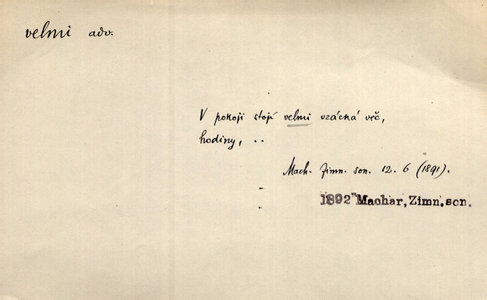 velmi adv.
V pokoji stojí velmi vzácná věc,
hodiny, ..
Mach. Zimn. son. 12. 6 (1891).
1892 Machar, Zimn. son.